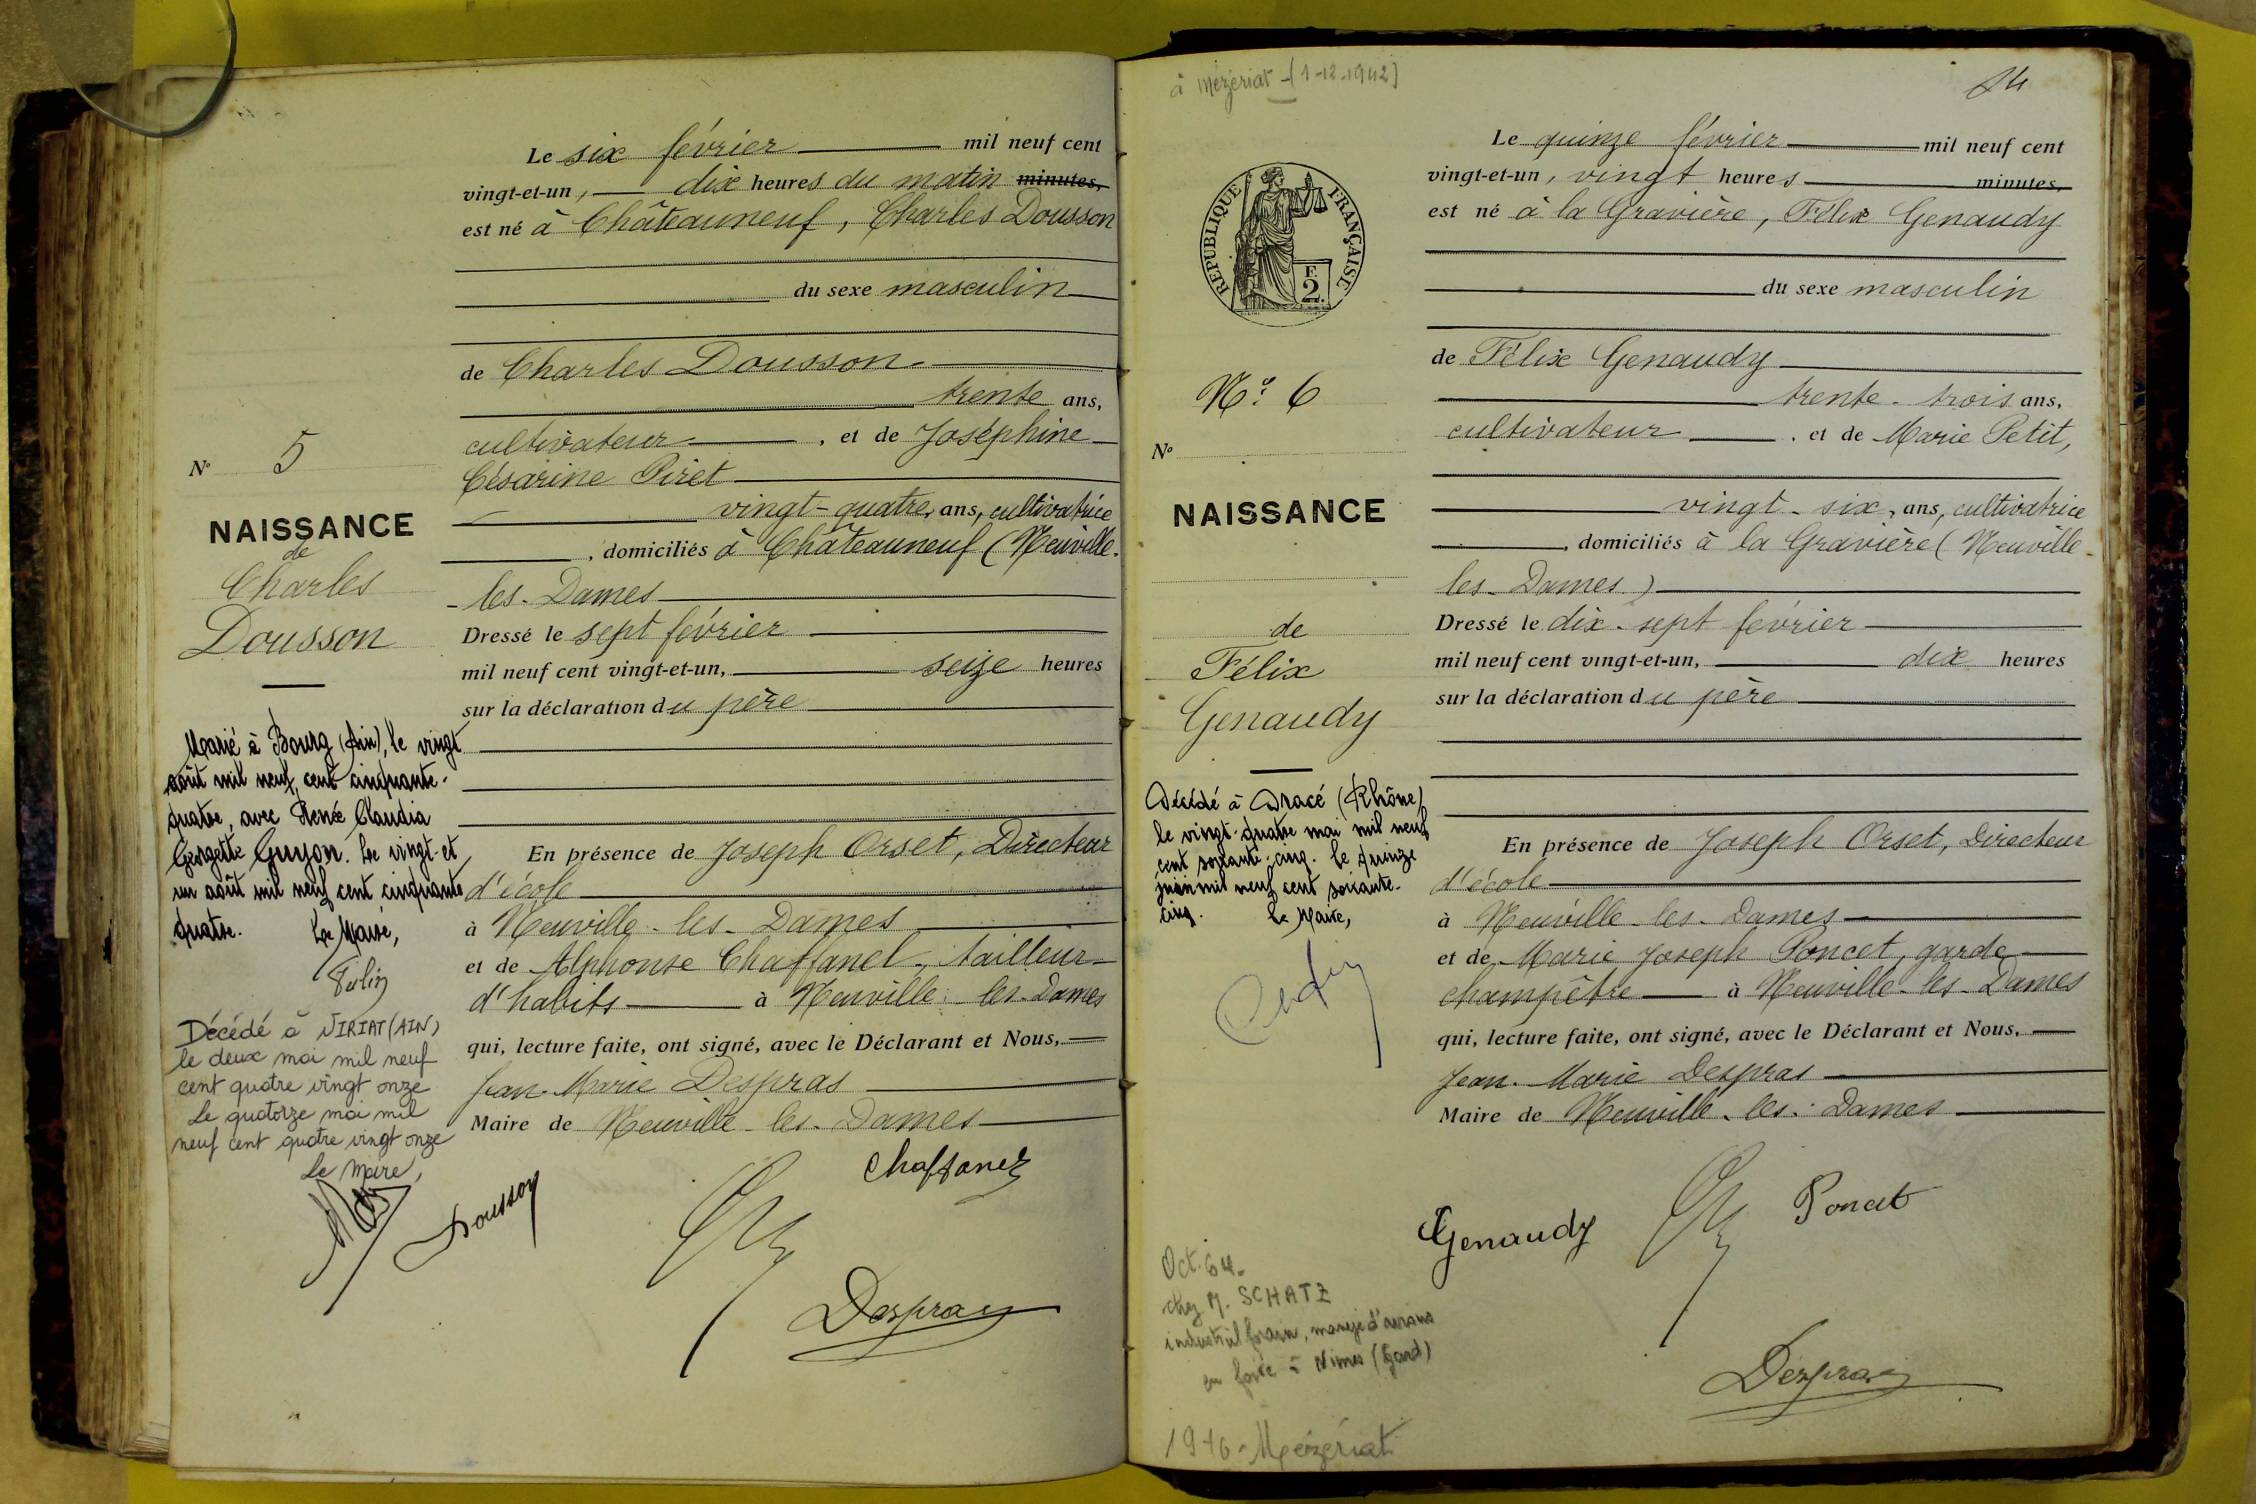 Le six février mil neuf cent
vingt-et-un, dix heures du matin minutes,
est né à Châteauneuf, Charles Dousson
du sexe masculin
de Charles Dousson
trente ans,
cultivateur, et de Joséphine
Césarine Piret
vingt-quatre, ans, cultivatrice
, domiciliés à Châteauneuf (Neuville-
-les-Dames
Dressé le sept février
mil neuf cent vingt-et-un, seize heures
sur la déclaration du père
En présence de Joseph Orset, Directeur
d'école
à Neuville-les-Dames
et de Alphonse Chaffanel, tailleur
d'habits à Neuville-les-Dames
qui, lecture faite, ont signé, avec le Déclarant et Nous,
Jean-Marie Despras
Maire de Neuville-les-Dames
Chaffanel
Dousson
Despras
No 5
NAISSANCE
de
Charles
Dousson
Marié à Bourg (Ain), le vingt
août mil neuf cent cinquante-
quatre, avec Renée Claudia
Georgette Guyon. Le vingt-et
un août mil neuf cent cinquante
quatre. Le Maire,
Décédé à VIRIAT (AIN)
le deux mai mil neuf
cent quatre vingt onze
Le quatorze mai mil
neuf cent quatre vingt onze
Le Maire,
à Mézériat - (1-12-1942)
14
RÉPUBLIQUE FRANÇAISE
F.
2.
Nº: 6
No
NAISSANCE
de
Félix
Genaudy
Décédé à Dracé (Rhône)
le vingt-quatre mai mil neuf
cent soixante-cinq. Le quinze
juin mil neuf cent soixante-
cinq. Le Maire,
Oct. 64-
chez M. SCHATZ
industriel forain, manège d'avions
en foire à Nîmes (Gard)
Mézériat
Le quinze février mil neuf cent
vingt-et-un, vingt heures minutes,
est né à la Gravière, Félix Genaudy
du sexe masculin
de Félix Genaudy
trente-trois ans,
cultivateur, et de Marie Petit,
vingt-six, ans, cultivatrice
, domiciliés à la Gravière (Neuville-
les-Dames)
Dressé le dix-sept février
mil neuf cent vingt-et-un, dix heures
sur la déclaration du père
En présence de Joseph Orset, Directeur
d'école
à Neuville-les-Dames
et de Marie Joseph Poncet, garde
champêtre à Neuville-les-Dames
qui, lecture faite, ont signé, avec le Déclarant et Nous,
Jean-Marie Despras
Maire de Neuville-les-Dames
Genaudy
Poncet
Despras